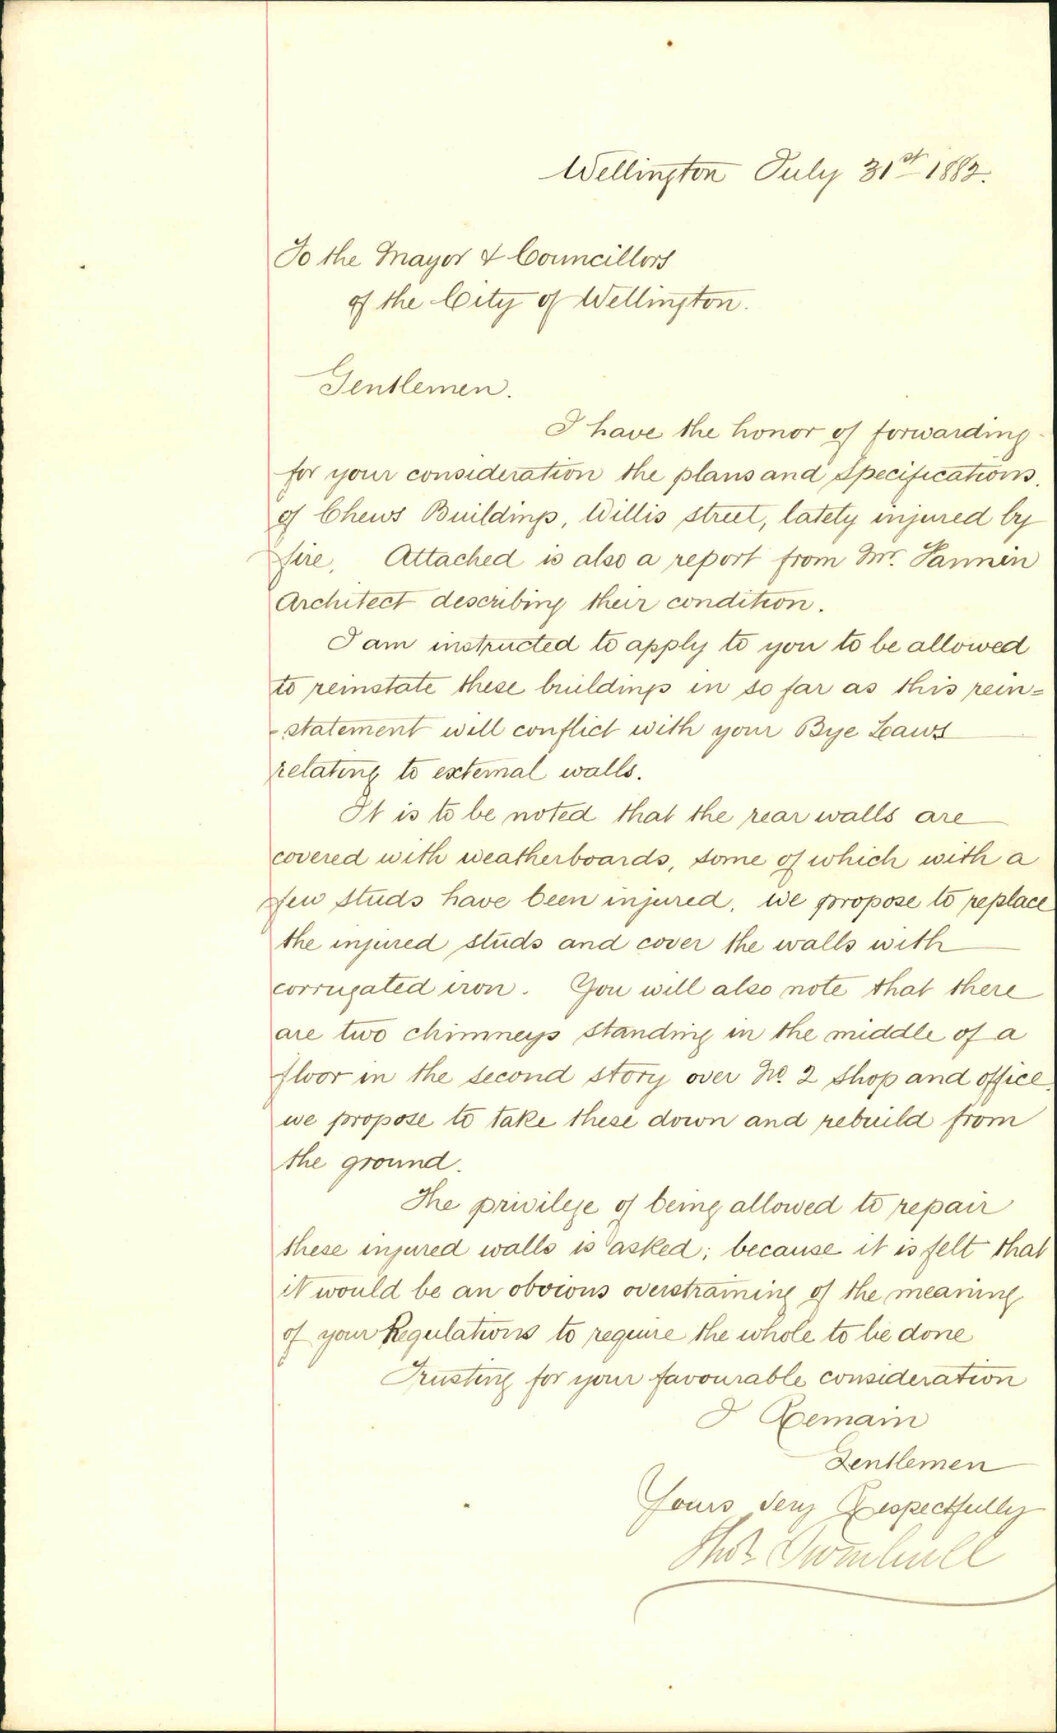 Wellington July 31st 1882.
To the Mayor & Councillors
of the City of Wellington.
Gentlemen.
I have the honor of forwarding
for your consideration the plans and Specifications.
of Chews Buildings, Willis street, lately injured by
fire. Attached is also a report from Mr.
Architect describing their condition.
I am instructed to apply to you to be allowed
to reinstate these buildings in so far as this rein=
-statement will conflict with your Bye Laws
relating to external walls.
It is to be noted that the rear walls are
covered with weatherboards, some of which with a
few studs have been injured, we propose to replace
the injured studs and cover the walls with
corrugated iron. You will also note that there
are two chimneys standing in the middle of a
floor in the second story over No. 2 shop and office.
we propose to take these down and rebuild from
the ground.
The privilege of being allowed to repair
these injured walls is asked; because it is felt that
it would be an obvious overstraining of the meaning
of your Regulations to require the whole to be done
Trusting for your favourable consideration
I Remain
Gentlemen
Yours very Respectfully
Thos Turnbull